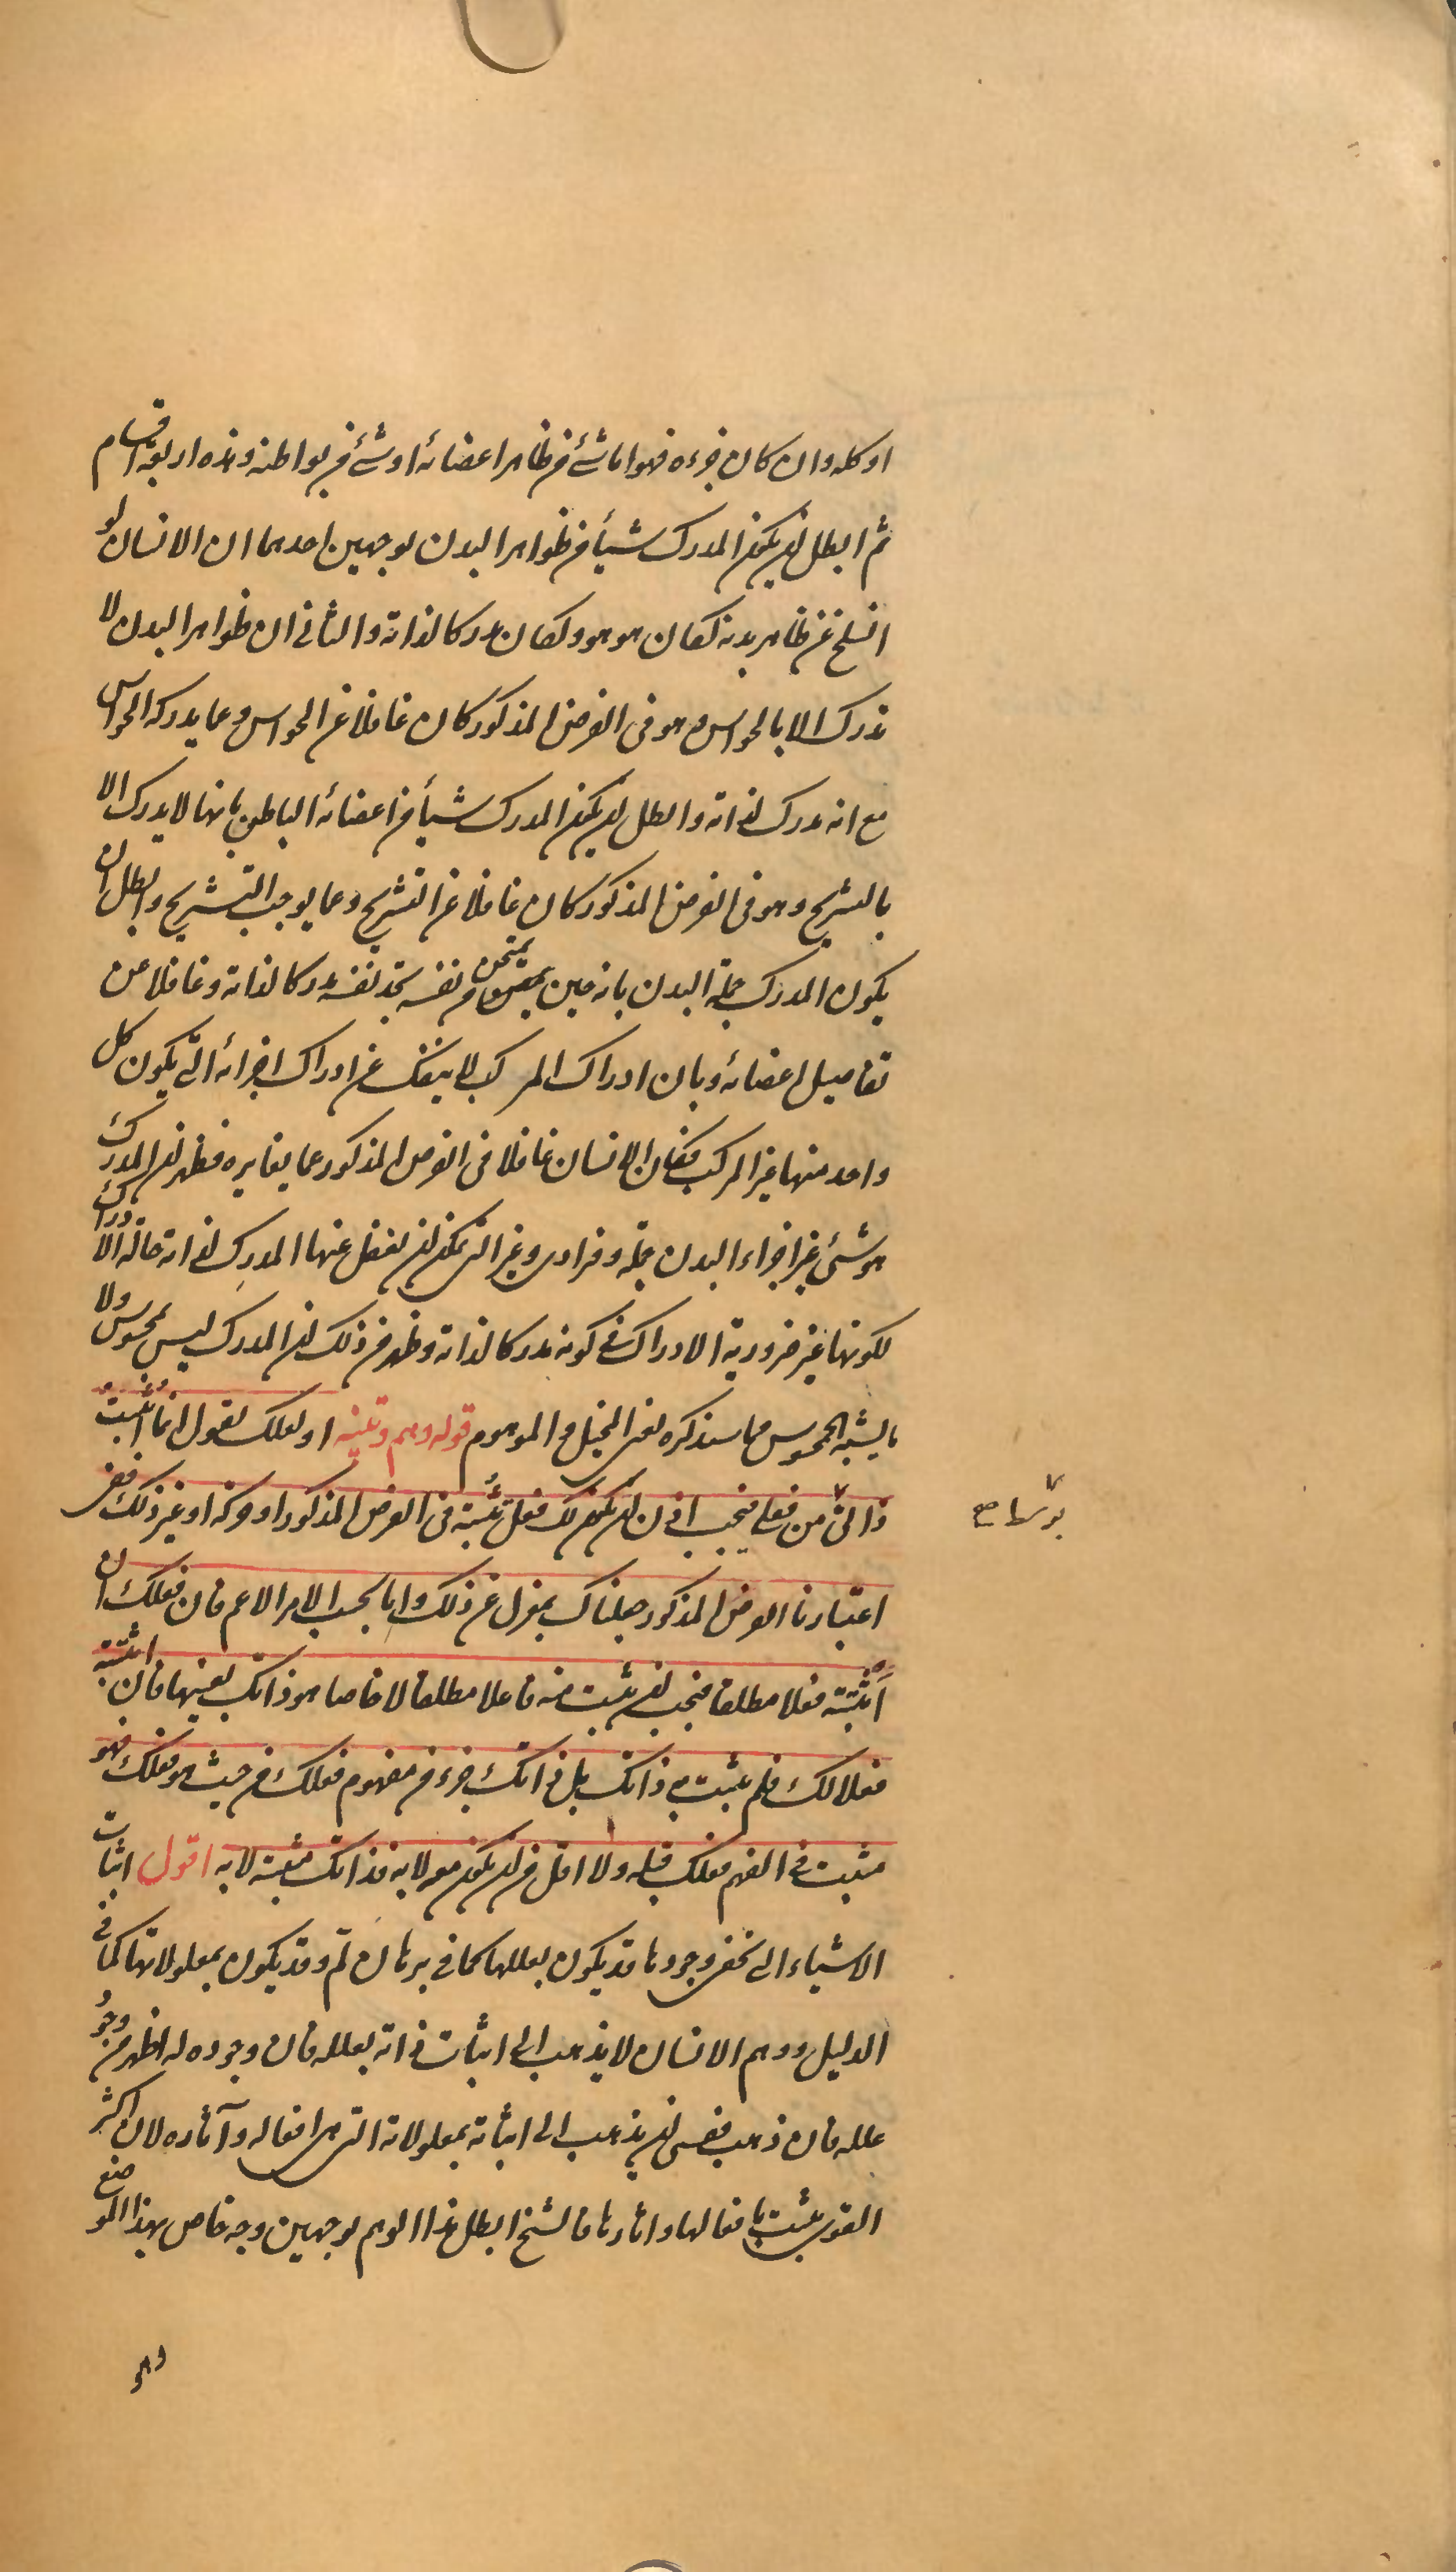 او كله وان كان جزءه فهو اما شئ من ظاهر اعضائه او شئ من بواطنه وهذه اربعة اقسام
ثم ابطل ان يكون المدرك شيأ من ظواهر البدن بوجهين احدهما ان الانسان لو
انسلخ عن ظاهر بدنه لكان هو هو ولكان مدركا لذاته والثانى ان ظواهر البدن لا
تدرك الا بالحواس وهو فى الفرض المذكور كان غافلا عن الحواس وعما يدركه الحواس
مع انه مدرك لذاته وابطل ان يكون المدرك شيأ من اعضائه الباطن بانها لا يدرك الا
بالتشريح وهو فى الفرض المذكور كان غافلا عن التشريح وعما يوجب التشريح وابطل ان
يكون المدرك جملة البدن بانه حين يمتحن من نفسه يجد نفسه مدركا لذاته وغافلا عن
تفاصيل اعضائه وبان ادراك المركب لا ينفك عن ادراك اجزائه التى يكون كل
واحد منها غير المركب فكان الانسان غافلا فى الفرض المذكور عما يغايره فظهر ان المدرك
هو شئ غير اجزاء البدن جملة وفرادى وغير التى يمكن ان يغفل عنها المدرك لذاته حالة الادراك
لكونها غير ضرورية الادراك فى كونه مدركا لذاته وظهر من ذلك ان المدرك ليس بمحسوس ولا
ما يشبه المحسوس مما سنذكره يعنى المخيل والموهوم قوله وهم وتنبيه او لعلك تقول انما اثبت
ذاتى من فعلى فيجب اذن ان يكون لك فعل تثبته فى الفرض المذكور او حركة او غير ذلك ففى
اعتبارنا الفرض المذكور جعلناك بمعزل عن ذلك واما بحسب الامر الاعم فان فعلك ان
اثبته فعلا مطلقا فيجب ان يثبت منه فاعلا مطلقا لا خاصا هو ذاتك بعينها فان اثبته
فعلا لك فلم يثبت به ذاتك بل ذاتك جزء من مفهوم فعلك من حيث هو فعلك فهو
مثبت فى الفهم فعلك قبله ولا اقل من ان يكون معه لا به فذاتك مثبتة لا به اقول اثبات
الاشياء التى تخفى وجودها قد يكون بعللها كما فى برهان لم وقد يكون بمعلولاتها كما فى
الدليل ووهم الانسان لا يذهب الى اثبات ذاته بعلله فان وجوده له اظهر من وجود
علله فان ذهب فعسى ان يذهب الى اثباته بمعلولاته التى هى افعاله وآثاره لان اكثر
القوى يثبت بافعالها واثارها فالشيخ ابطل هذا الوهم بوجهين وجه خاص بهذا الموضع